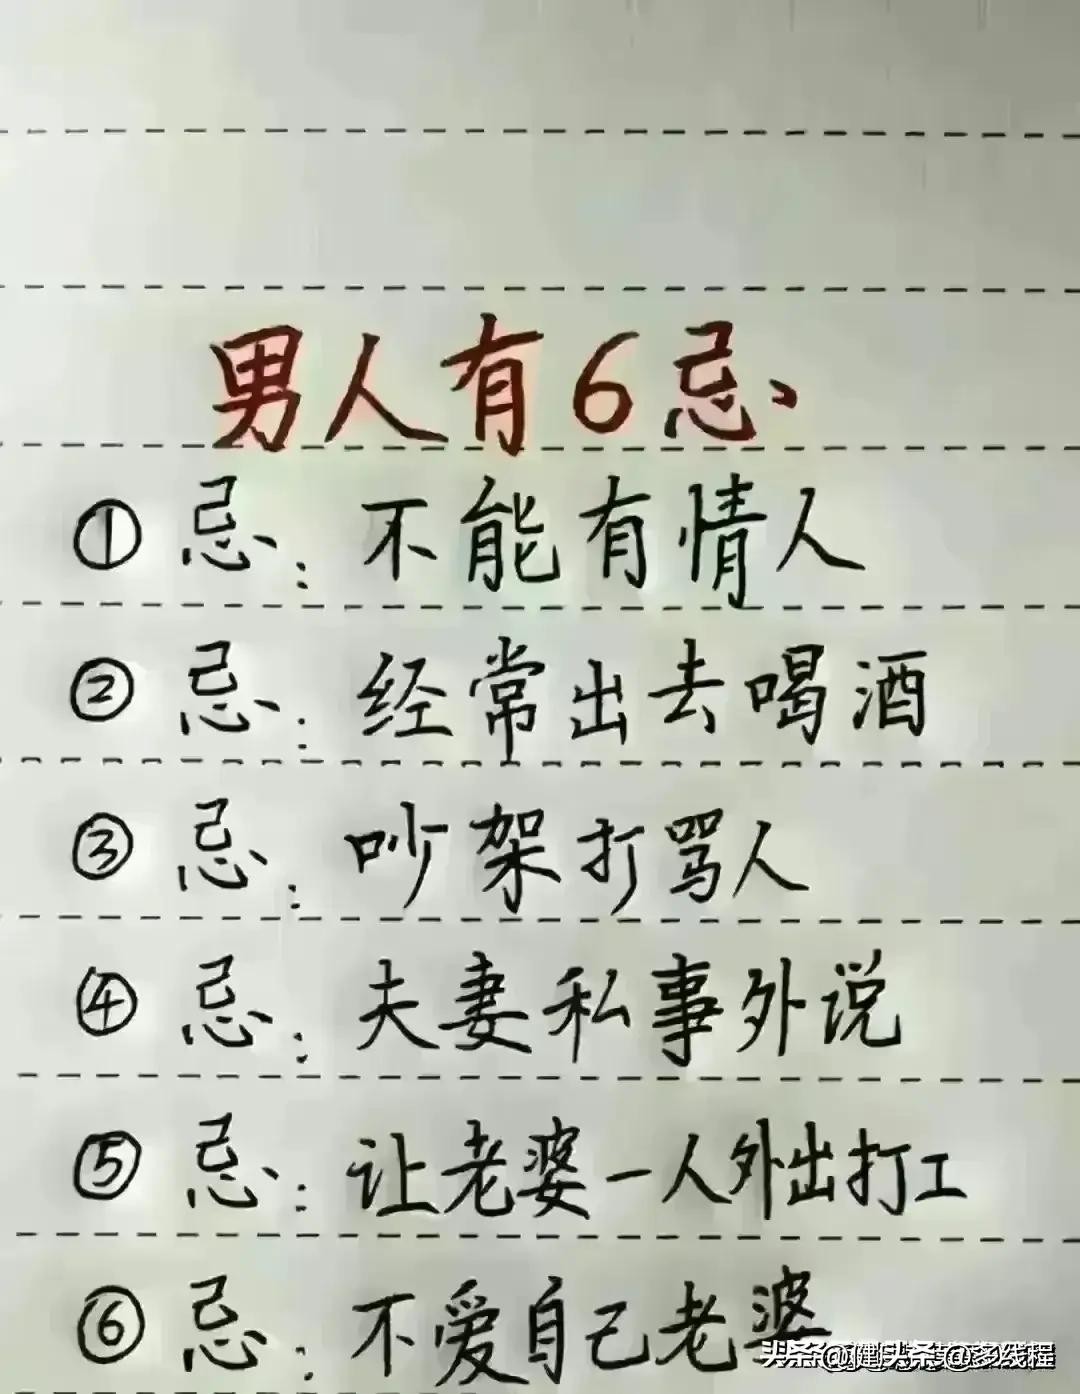 男人有6忌
①忌:不能有情人
②忌:经常出去喝酒
③忌:吵架打骂人
④忌:夫妻私事外说
⑤忌:让老婆一人外出打工
⑥忌:不爱自己老婆
头条@健 头条@多线程